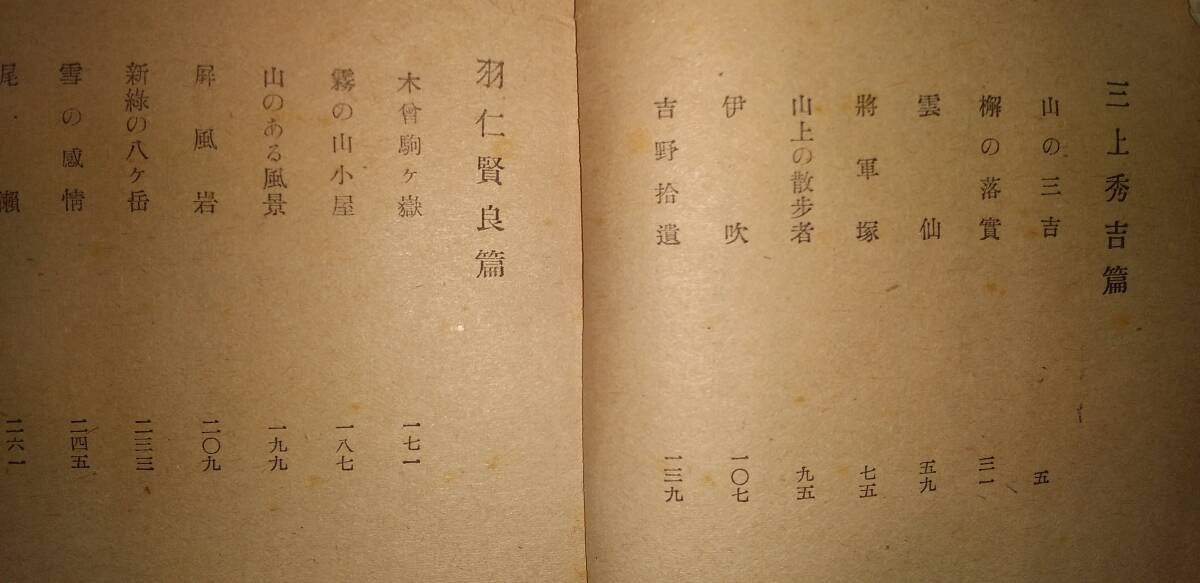 三上秀吉篇
山の三吉 五
檞の落實 三一
雲仙 五九
將軍塚 七五
山上の散步者 九五
伊吹 一〇七
吉野拾遺 一三九
羽仁賢良篇
木曾駒ヶ嶽 一七一
霧の山小屋 一八七
山のある風景 一九九
屛風岩 二〇九
新綠の八ヶ岳 二三三
雪の感情 二四五
尾瀨 二六一